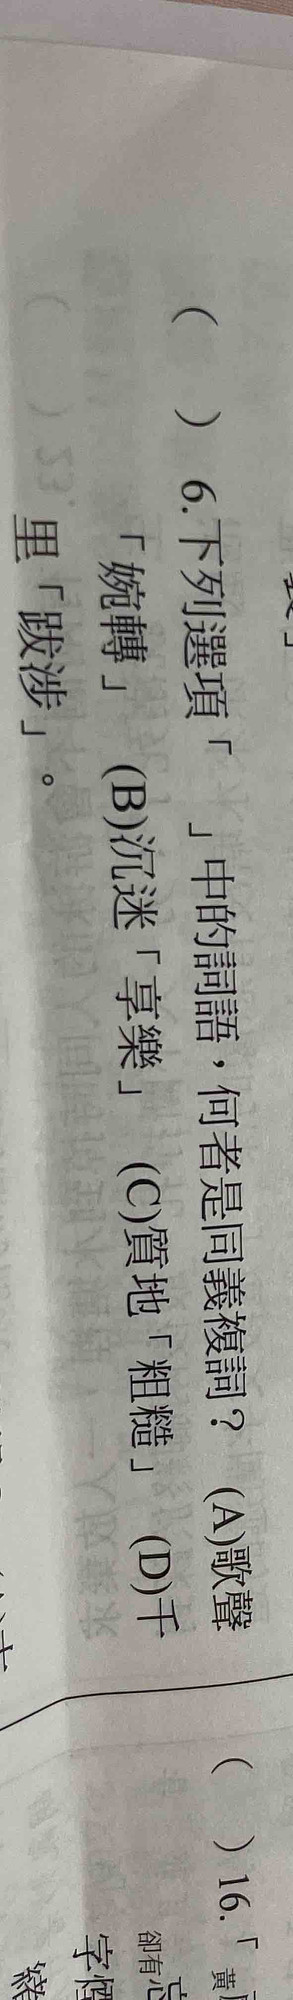 (　　) 6.下列選項「　　」中的詞語，何者是同義複詞？　(A)歌聲
「婉轉」　(B)沉迷「享樂」　(C)質地「粗糙」　(D)千
里「跋涉」。
(　　) 16.「黃
卻有忘
字
緒